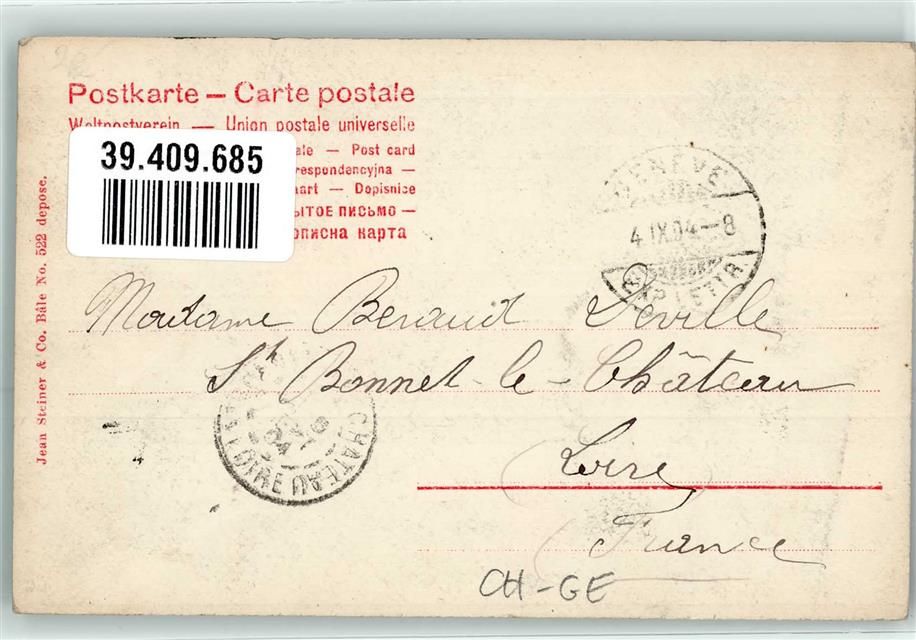 Postkarte — Carte postale
Weltpostverein — Union postale universelle
ale — Post card
respondencyjna —
aart — Dopisnice
ЫТОЕ ПИСЬМО —
ОПИСНА КАРТА
39.409.685
Jean Steiner & Co. Bâle No. 522 depose.
GENÈVE
4 IX.04—8
Madame Beraud Seville
St Bonnet-le-Château
CHATEAU
LOIRE
04
Loire
France
CH-GE